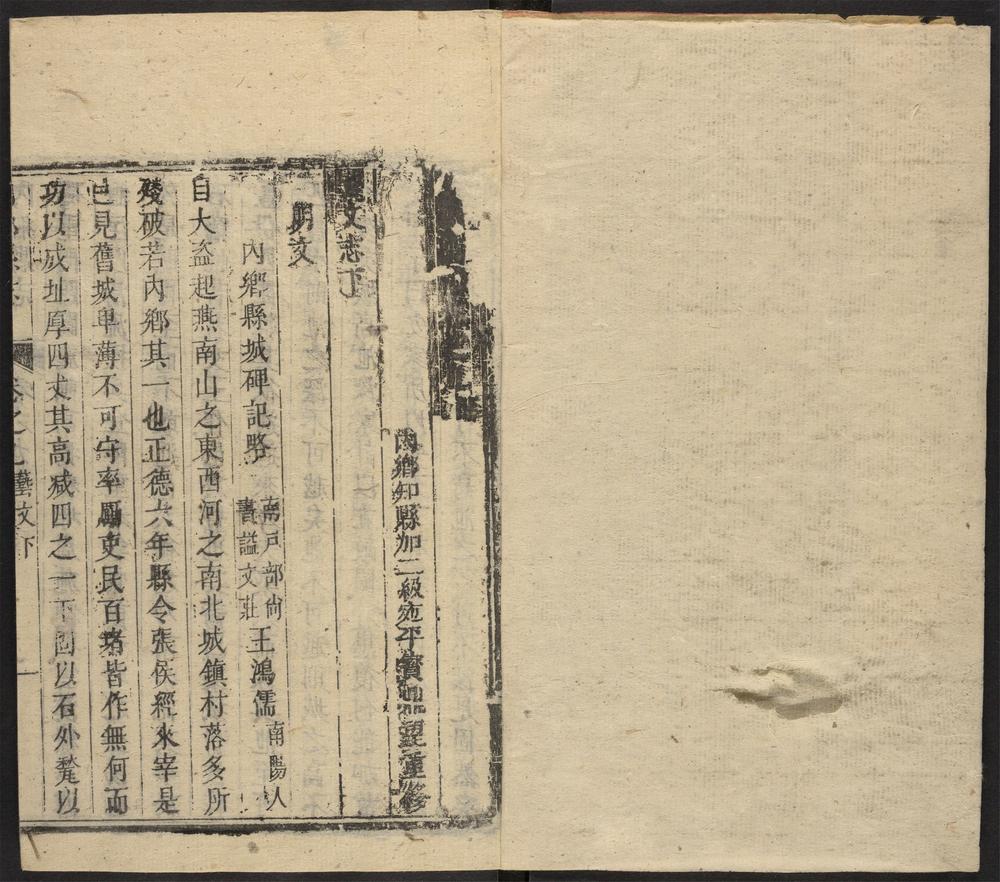 內鄉知縣加二級宛平寶鼎望重修
文志下
明文
內鄉縣城碑記略 南戶部尚書謚文莊 王鴻儒 南陽人
自大盜起燕南山之東西河之南北城鎮村落多所
殘破若內鄉其一也正德六年縣令張侯經來宰是
邑見舊城卑薄不可守率厲吏民百堵皆作無何而
功以成址厚四丈其高减四之一下固以石外甃以
卷之七藝文下 一